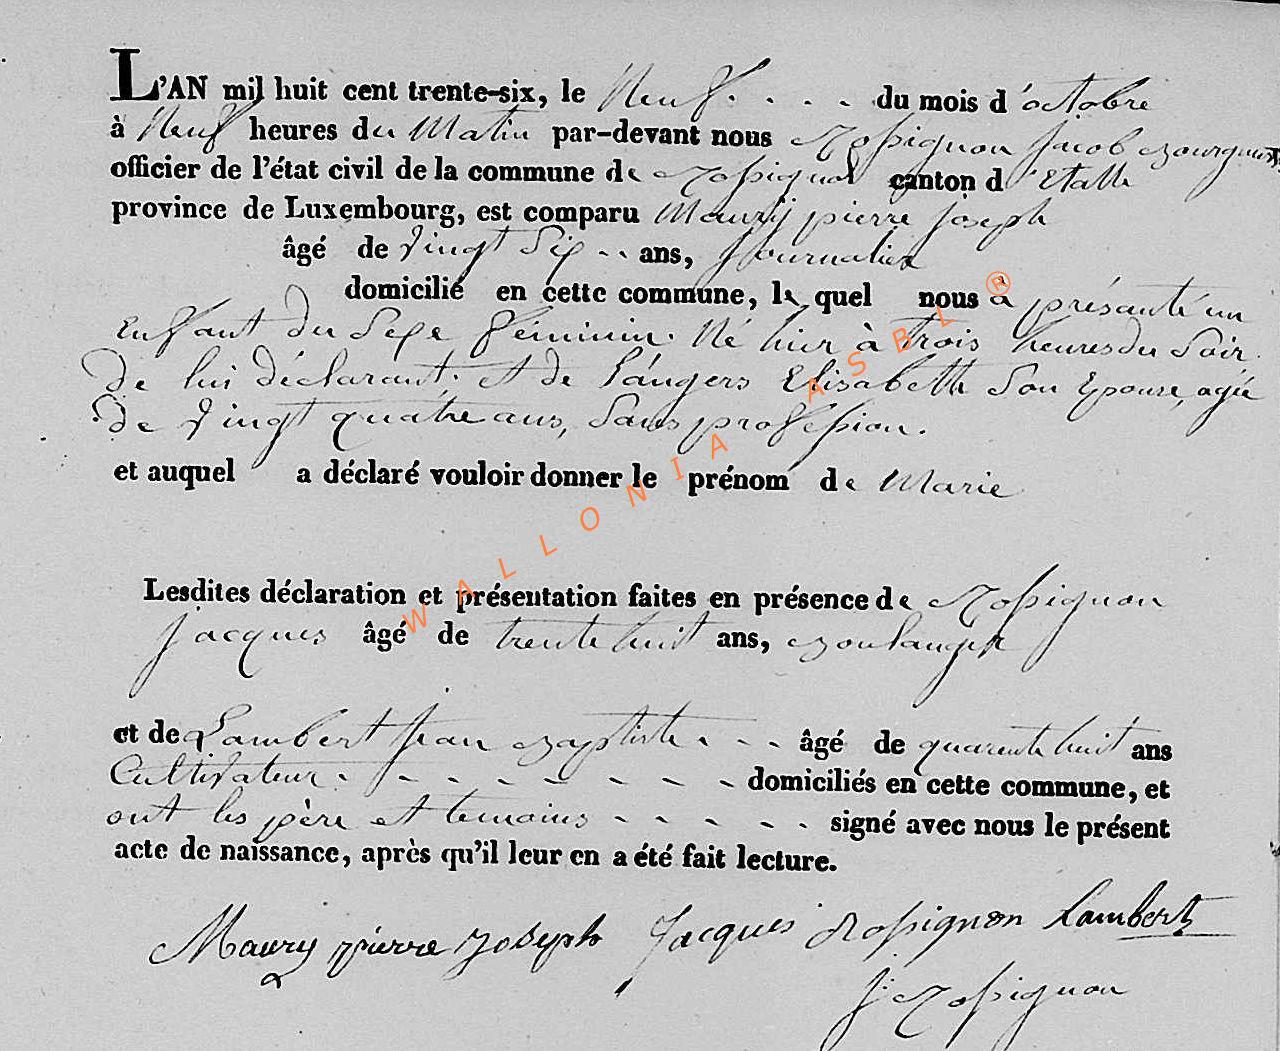 L'AN mil huit cent trente-six, le Neuf . . . du mois d'octobre
à Neuf heures du Matin par-devant nous Rossignon jacob Bourgmest
officier de l'état civil de la commune de Rossignol canton d'Etalle
province de Luxembourg, est comparu Maury pierre joseph
âgé de vingt six -- ans, journalier
domicilié en cette commune, lequel nous à présanté un
Enfant du Sexe féminin. Né hier à trois heures du Soir.
De lui déclarant. et de Elisabeth Son Epouse, agée
De vingt quatre ans, Sans profession.
et auquel a déclaré vouloir donner le prénom de Marie
Lesdites déclaration et présentation faites en présence de Rossignon
jacques âgé de trente huit ans, Boulanger
et de Lambert jean Baptiste . - - âgé de quarente huit ans
Cultivateur. - - - - - - - - domiciliés en cette commune, et
ont les père et temoins - - - - - signé avec nous le présent
acte de naissance, après qu'il leur en a été fait lecture.
Maury pierre joseph Jacques Rossignon Lambert
j. Rossignon
WALLONIA ASBL ®